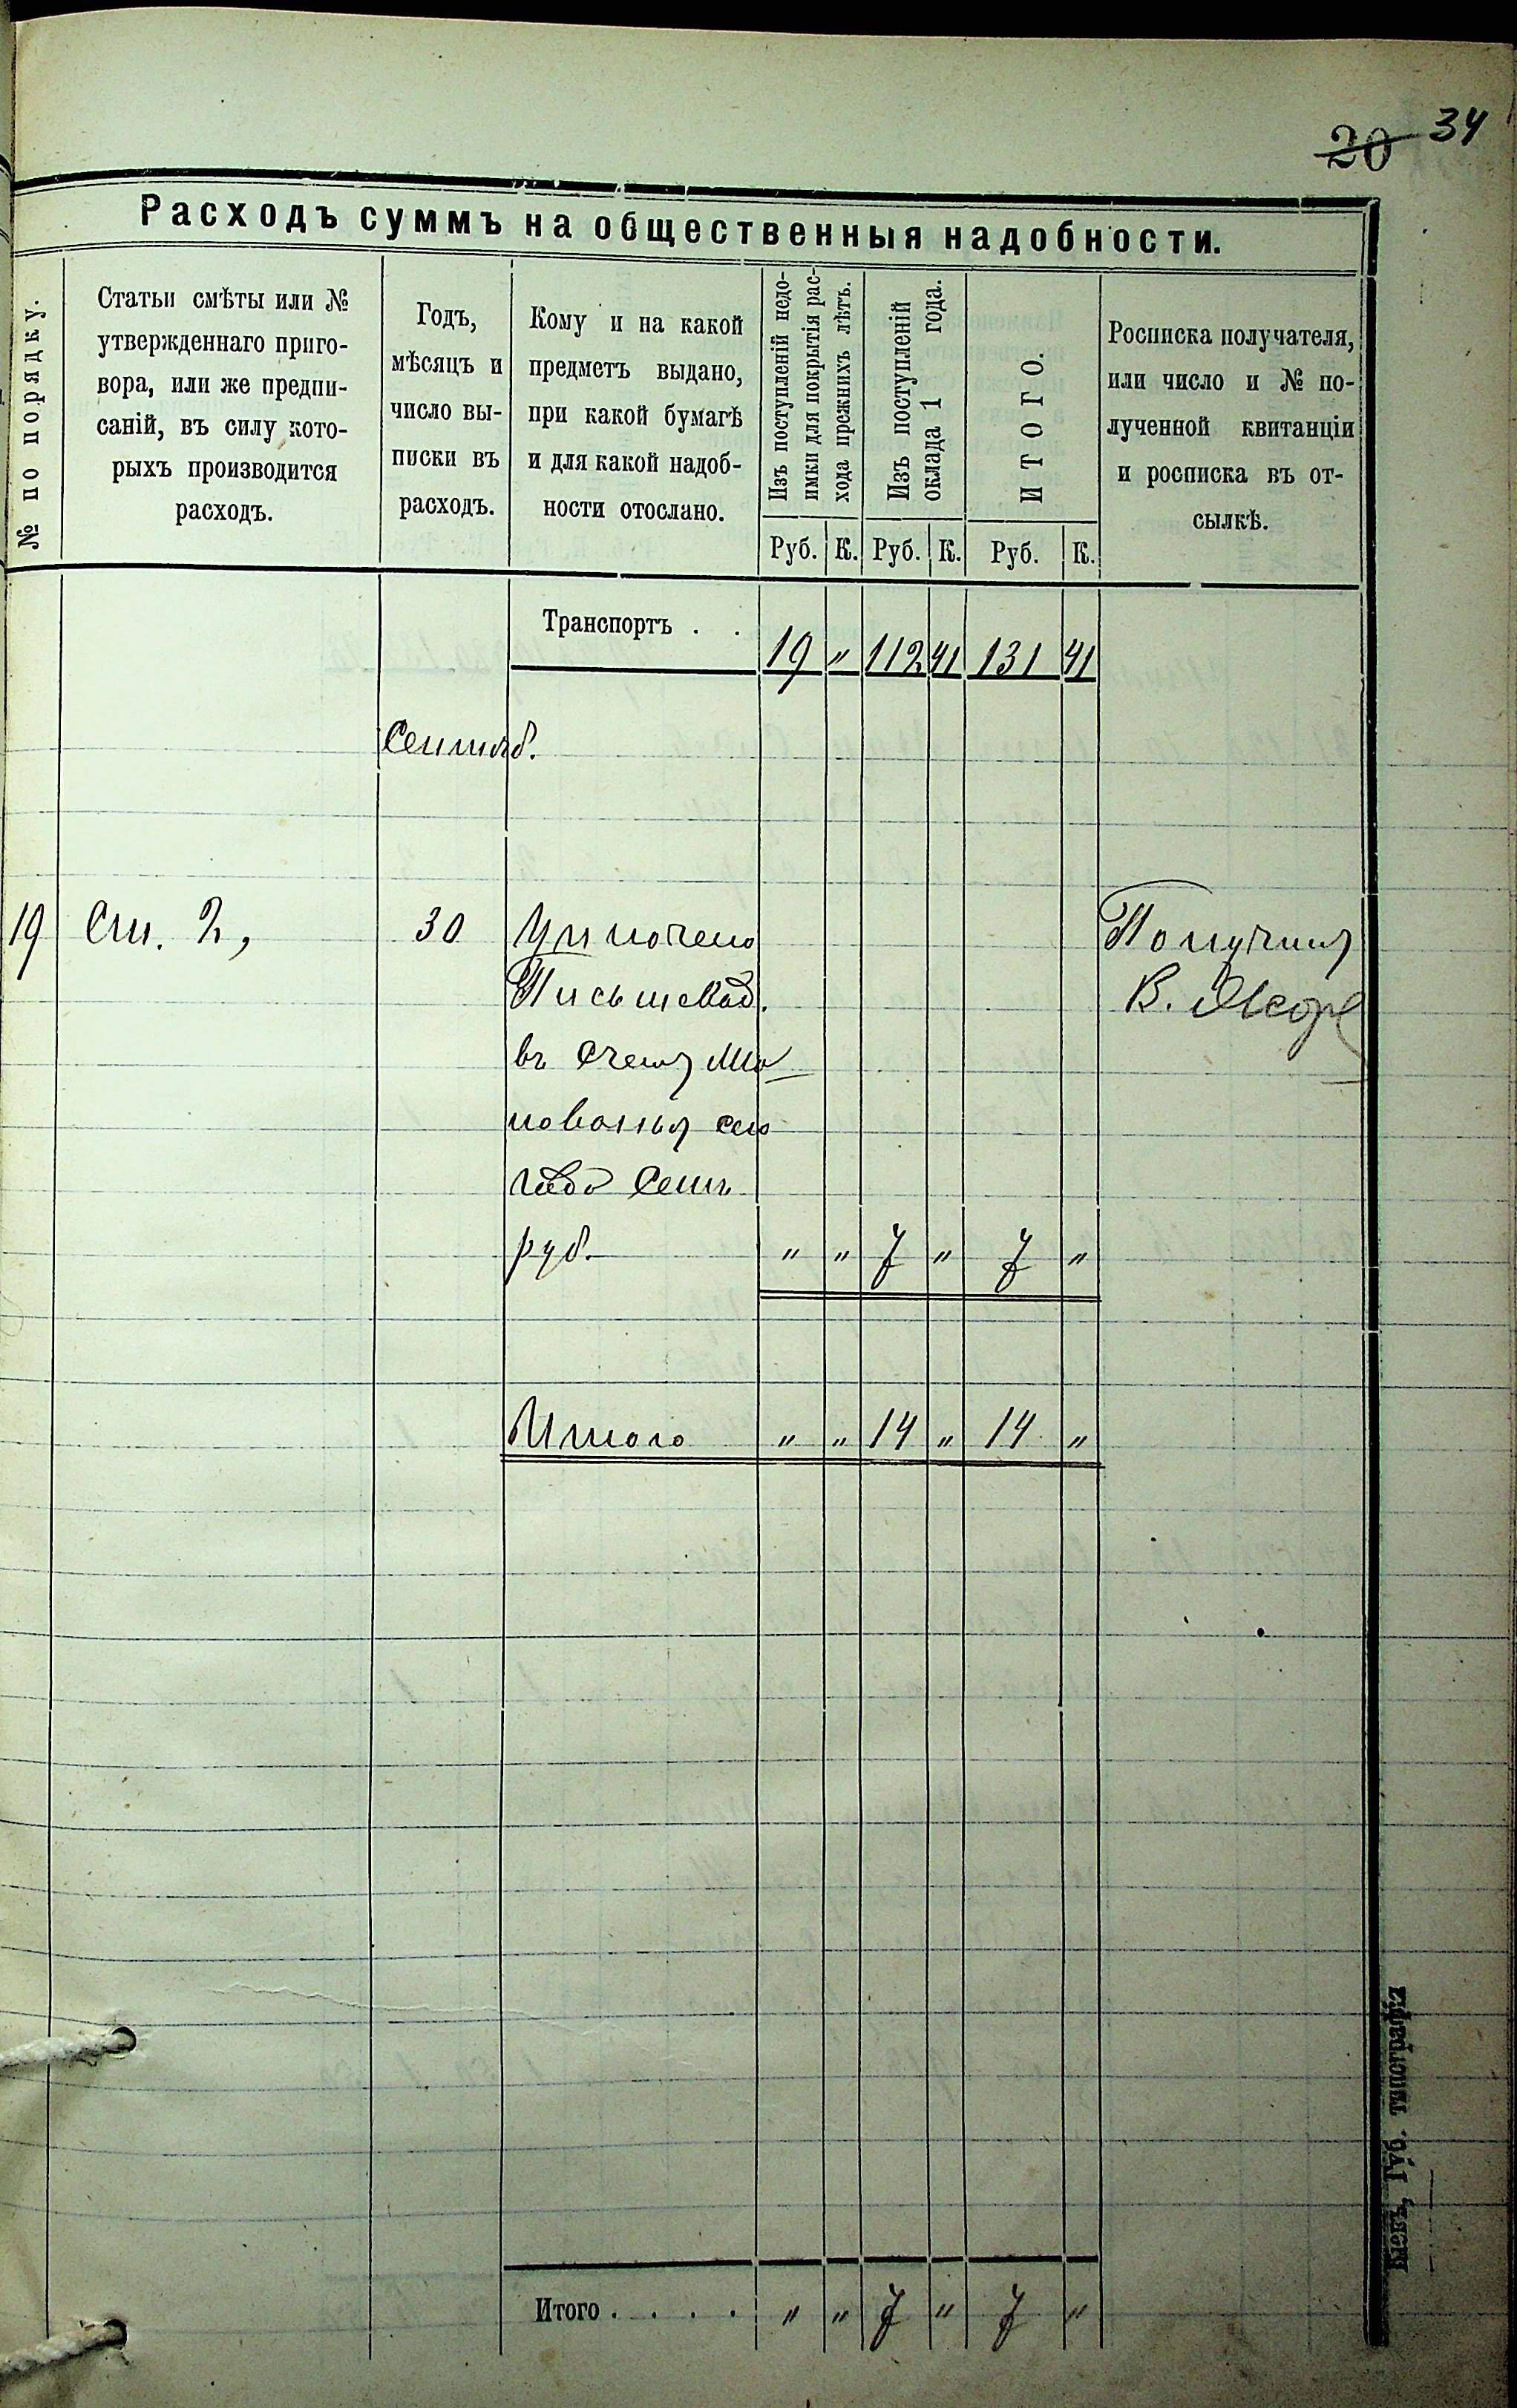 20 34
Расходъ суммъ на общественныя надобности.
№ по порядку.
Статьи смѣты или №
утвержденнаго приго-
вора, или же предпи-
саній, въ силу кото-
рыхъ производится
расходъ.
Годъ,
мѣсяцъ и
число вы-
писки въ
расходъ.
Кому и на какой
предметъ выдано,
при какой бумагѣ
и для какой надоб-
ности отослано.
Изъ поступленій недо-
имки для покрытія рас-
хода прежнихъ лѣтъ.
Изъ поступленій
оклада 1 года.
ИТОГО.
Росписка получателя,
или число и № по-
лученной квитанціи
и росписка въ от-
сылкѣ.
Руб. К. Руб. К. Руб. К.
Транспортъ . . 19 " 112 41 131 41
Сентяб.
19 Ст. 2, 30 Уплочено Получилъ
Письмовод. В.
въ счетъ жа
лованья сего
года семь
руб. " " 7 " 7 "
Итого " " 14 " 14 "
Итого . . . . " " 7 " 7 "
Губ. типографія